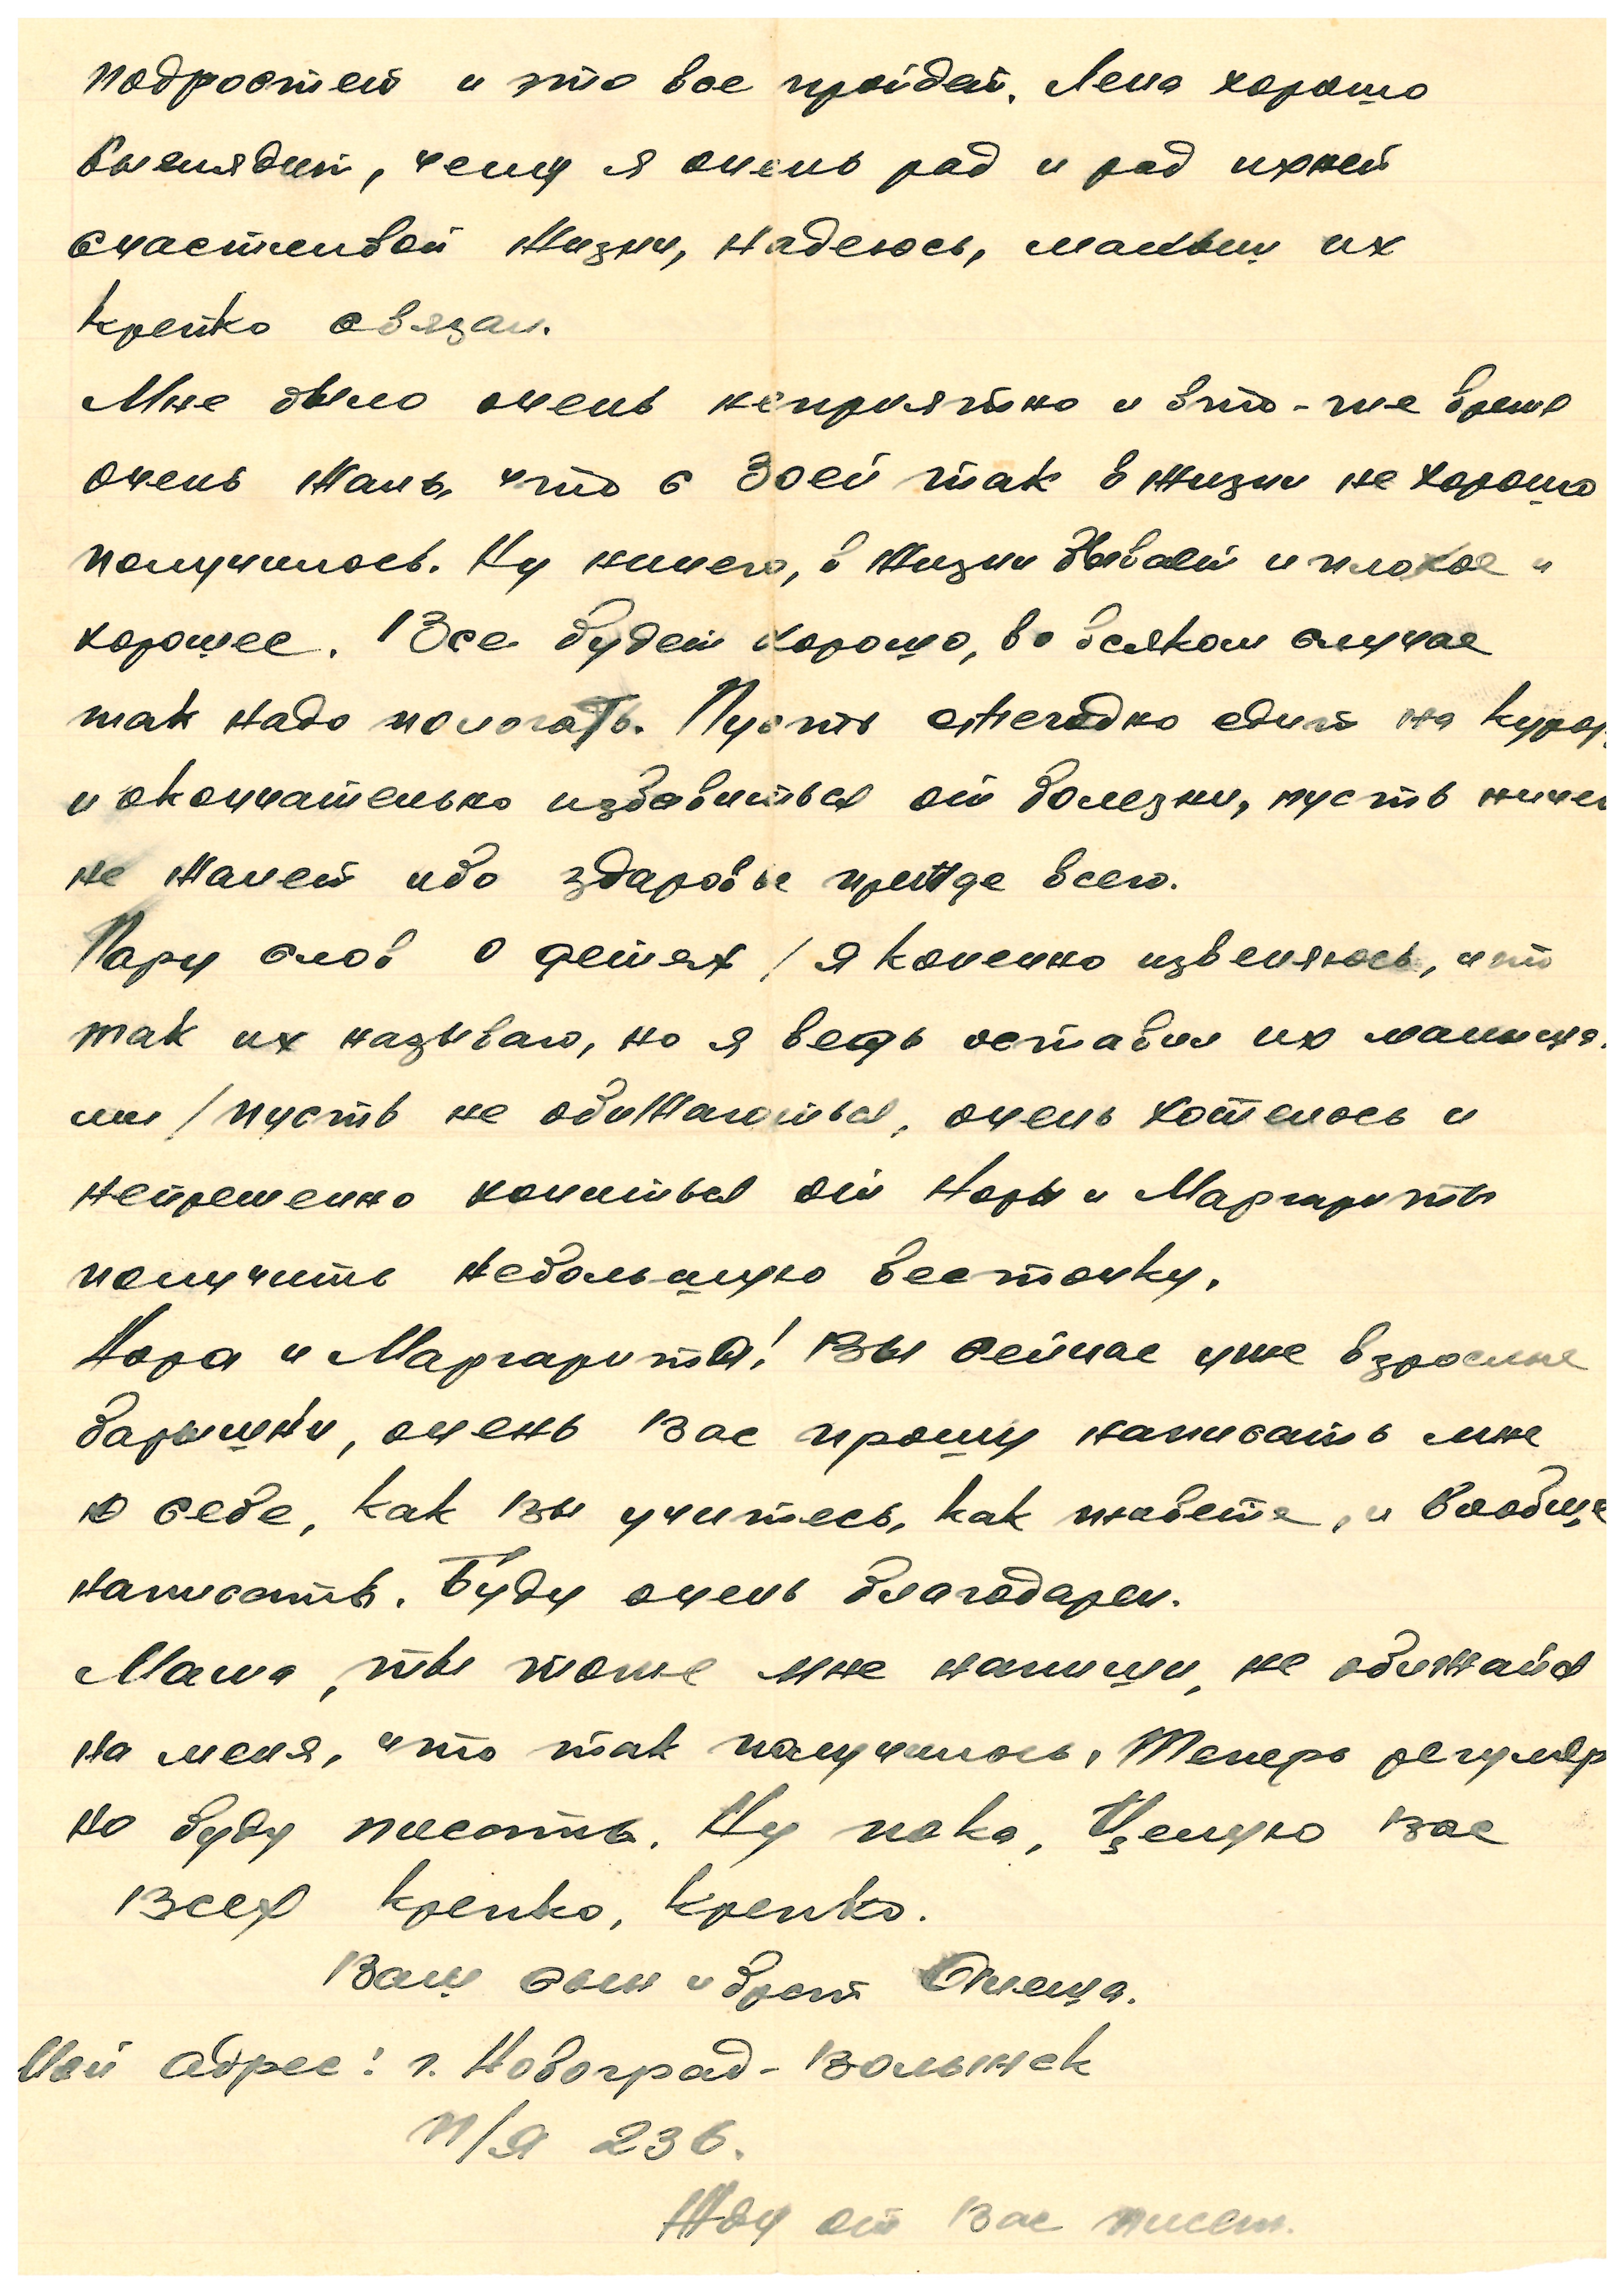 подростет и это все пройдет. Лена хорошо
выглядит, чему я очень рад и рад ихней
счастливой жизни, надеюсь, малыш их
крепко связал.
Мне было очень неприятно и вто-же время
очень жаль, что с Зоей так в жизни не хорошо
получилось. Ну ничего, в жизни бывает и плохое и
хорошее. Все будет хорошо, во всяком случае
так надо пологать. Пусть ежегодно едит на курор
и окончательно избавиться от болезни, пусть ниче
не жалеет ибо здаровье прежде всего.
Пару слов о детях / я конечно извеняюсь, что
так их называю, но я ведь оставил их малыша
ми / пусть не обижаються, очень хотелось и
непременно хочиться от Норы и Маргариты
получить небольшую весточку.
Нора и Маргарита! Вы сейчас уже взрослые
барышни, очень Вас прошу написать мне
о себе, как Вы учитесь, как живете, и вообще
написать. Буду очень благодарен.
Мама, ты тоже мне напиши, не обижайся
на меня, что так получилось. Теперь регуляр
но буду писать. Ну пока, Целую Вас
Всех крепко, крепко.
Ваш сын и брат
Мой адрес: г. Новоград-Волынск
П/Я 236.
Жду от Вас писем.